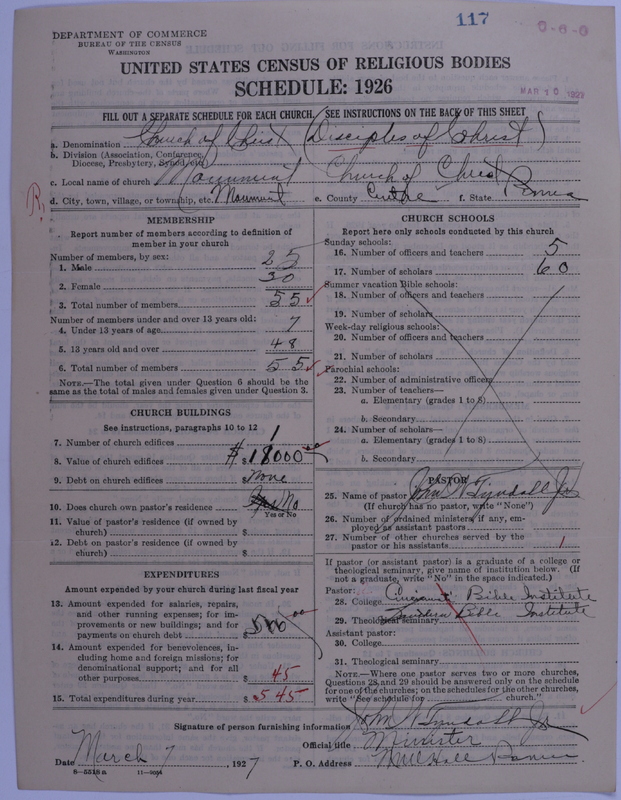 117
DEPARTMENT OF COMMERCE
BUREAU OF THE CENSUS
WASHINGTON
UNITED STATES CENSUS OF RELIGIOUS BODIES
SCHEDULE: 1926
MAR 10 1927
FILL OUT A SEPARATE SCHEDULE FOR EACH CHURCH. SEE INSTRUCTIONS ON THE BACK OF THIS SHEET
a. Denomination Church of Christ (Disciples of Christ)
b. Division (Association, Conference, Diocese, Presbytery, Synod, etc.)
c. Local name of church Monument Church of Christ
d. City, town, village, or township, etc. Monument e. County Centre f. State Penna
MEMBERSHIP
Report number of members according to definition of member in your church
Number of members, by sex:
1. Male 25
2. Female 30
3. Total number of members 55
Number of members under and over 13 years old:
4. Under 13 years of age 7
5. 13 years old and over 48
6. Total number of members 55
NOTE.—The total given under Question 6 should be the same as the total of males and females given under Question 3.
CHURCH BUILDINGS
See instructions, paragraphs 10 to 12
7. Number of church edifices 1
8. Value of church edifices $ 18000
9. Debt on church edifices None
10. Does church own pastor's residence No
Yes or No
11. Value of pastor's residence (if owned by church) $
12. Debt on pastor's residence (if owned by church) $
EXPENDITURES
Amount expended by your church during last fiscal year
13. Amount expended for salaries, repairs, and other running expenses; for improvements or new buildings; and for payments on church debt $ 500
14. Amount expended for benevolences, including home and foreign missions; for denominational support; and for all other purposes $ 45
15. Total expenditures during year $ 545
CHURCH SCHOOLS
Report here only schools conducted by this church
Sunday schools:
16. Number of officers and teachers 5
17. Number of scholars 60
Summer vacation Bible schools:
18. Number of officers and teachers
19. Number of scholars
Week-day religious schools:
20. Number of officers and teachers
21. Number of scholars
Parochial schools:
22. Number of administrative officers
23. Number of teachers—
a. Elementary (grades 1 to 8)
b. Secondary
24. Number of scholars—
a. Elementary (grades 1 to 8)
b. Secondary
PASTOR
25. Name of pastor John W Tyndall Jr
(If church has no pastor, write "None")
26. Number of ordained ministers, if any, employed as assistant pastors
27. Number of other churches served by the pastor or his assistants 1
If pastor (or assistant pastor) is a graduate of a college or theological seminary, give name of institution below. (If not a graduate, write "No" in the space indicated.)
Pastor:
28. College Bible Institute
29. Theological seminary Bible Institute
Assistant pastor:
30. College
31. Theological seminary
NOTE.—Where one pastor serves two or more churches, Questions 28 and 29 should be answered only on the schedule for one of the churches; on the schedules for the other churches, write "See schedule for church."
Signature of person furnishing information John W Tyndall Jr
Official title Minister
Date March 7, 1927 P. O. Address Mill Hall Penna
8—5518a 11—9034